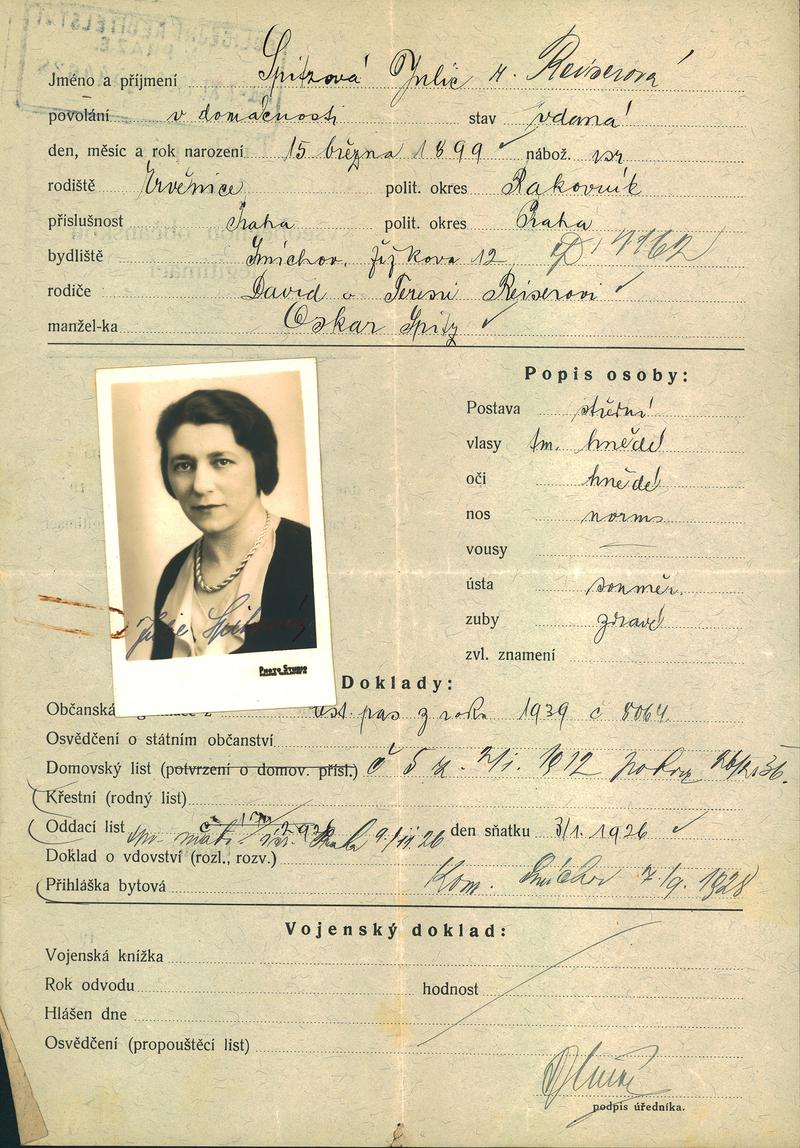 Jméno a příjmení Spitzová Julie r. Reiserová
povolání v domácnosti stav vdaná
den, měsíc a rok narození 15 března 1899 nábož. izr
rodiště Ervěnice polit. okres Rakovník
příslušnost Praha polit. okres Praha
bydliště Smíchov, Žižkova 12
rodiče David a Teresie Reiserovi
manžel-ka Oskar Spitz
Popis osoby:
Postava střední
vlasy tm. hnědé
oči hnědé
nos norm.
vousy —
ústa souměr.
zuby zdravé
zvl. znamení
Julie Spitzová
PHOTO STUDIO
Doklady:
Občanská cest. pas z roku 1939 č 8064
Osvědčení o státním občanství
Domovský list (potvrzení o domov. přísl.) č 5 z. 2/1. 1912
Křestní (rodný list)
Oddací list den sňatku 3/1. 1926
Doklad o vdovství (rozl., rozv.)
Přihláška bytová Kom. Smíchov 7/9. 1928
Vojenský doklad:
Vojenská knížka
Rok odvodu hodnost
Hlášen dne
Osvědčení (propouštěcí list)
podpis úředníka.